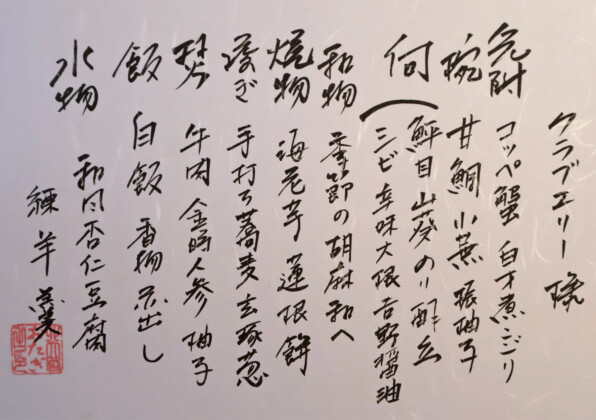 クラブエリー 様
先附 コッペ蟹 白才煮こごり
椀 甘鯛 小蕪 振柚子
向 鮃 山葵 のり酢
シビ 辛味大根 吉野醤油
和物 季節の胡麻和へ
焼物 海老芋 蓮根餅
凌ぎ 手打ち蕎麦 玄琢葱
焚 牛肉 金時人参 柚子
飯 白飯 香物 赤出し
水物 和風杏仁豆腐
練羊羹